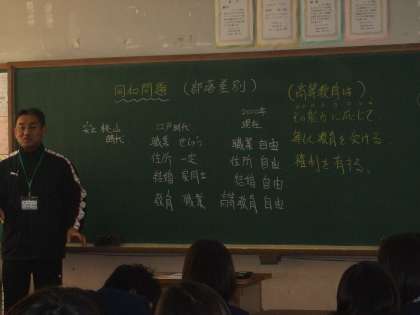 同和問題 (部落差別)
安土桃山
時代
江戸時代
職業
住所 一定
結婚
教育 職業
2000年
現在
職業 自由
住所 自由
結婚 自由
高等教育 自由
(高等教育は)
その能力に応じて
等しく教育を受ける
権利を有する。